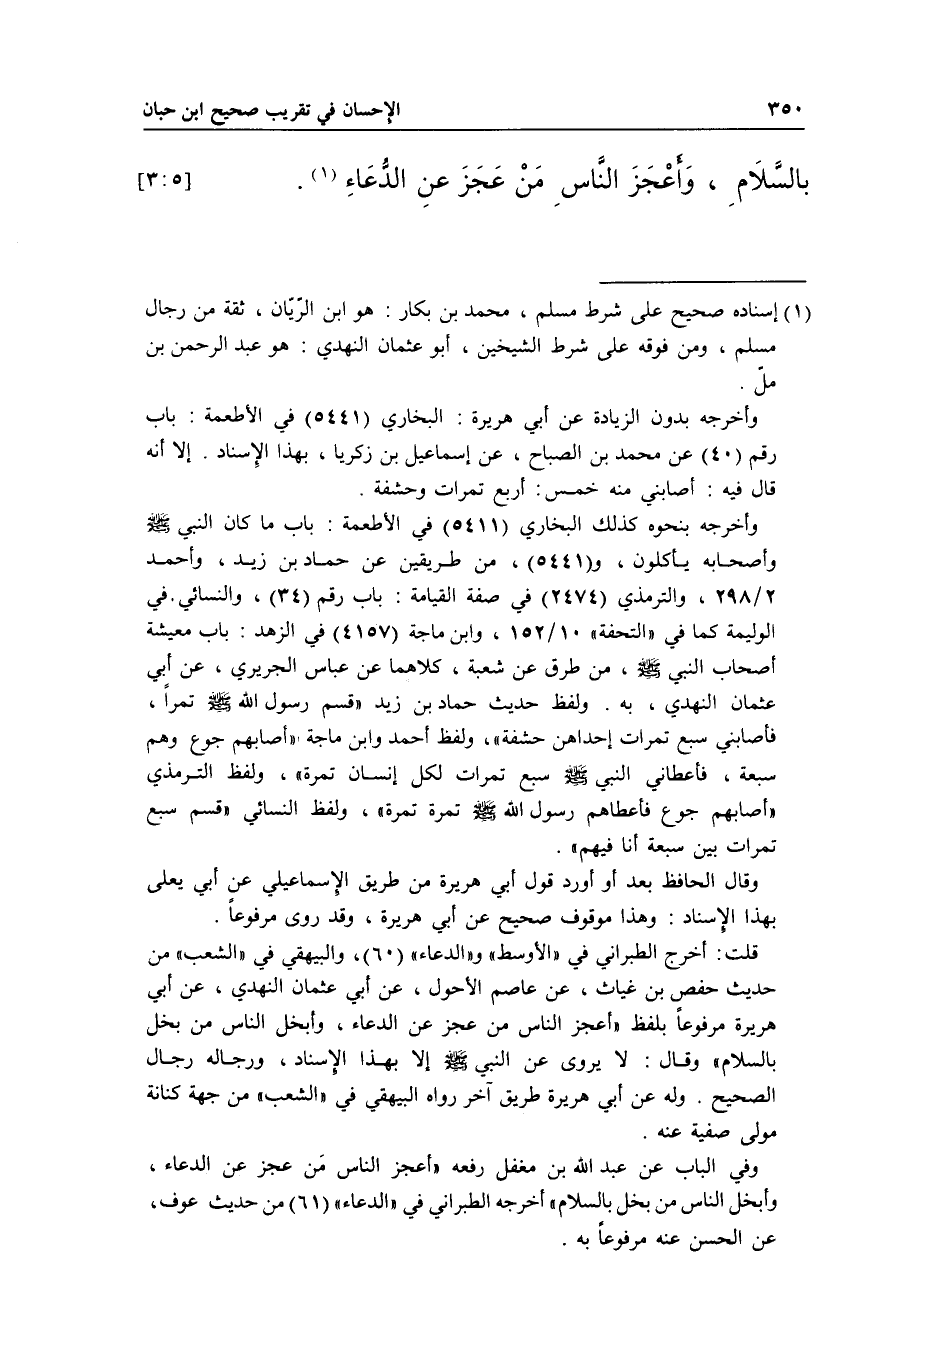 ٣٥٠ الإحسان في تقريب صحيح ابن حبان
بالسَّلَامِ ، وَأَعْجَزَ النَّاسِ مَنْ عَجَزَ عنِ الدُّعَاءِ (١) . [٣:٥]
(١) إسناده صحيح على شرط مسلم ، محمد بن بكار : هو ابن الرّيّان ، ثقة من رجال
مسلم ، ومن فوقه على شرط الشيخين ، أبو عثمان النهدي : هو عبد الرحمن بن
ملّ .
وأخرجه بدون الزيادة عن أبي هريرة : البخاري (٥٤٤١) في الأطعمة : باب
رقم (٤٠) عن محمد بن الصباح ، عن إسماعيل بن زكريا ، بهذا الإسناد . إلا أنه
قال فيه : أصابني منه خمس: أربع تمرات وحشفة .
وأخرجه بنحوه كذلك البخاري (٥٤١١) في الأطعمة : باب ما كان النبي ﷺ
وأصحابه يأكلون ، و(٥٤٤١) ، من طريقين عن حماد بن زيد ، وأحمد
٢٩٨/٢ ، والترمذي (٢٤٧٤) في صفة القيامة : باب رقم (٣٤) ، والنسائي في
الوليمة كما في «التحفة» ١٥٢/١٠ ، وابن ماجة (٤١٥٧) في الزهد : باب معيشة
أصحاب النبي ﷺ ، من طرق عن شعبة ، كلاهما عن عباس الجريري ، عن أبي
عثمان النهدي ، به . ولفظ حديث حماد بن زيد «قسم رسول الله ﷺ تمراً ،
فأصابني سبع تمرات إحداهن حشفة»، ولفظ أحمد وابن ماجة «أصابهم جوع وهم
سبعة ، فأعطاني النبي ﷺ سبع تمرات لكل إنسان تمرة» ، ولفظ الترمذي
«أصابهم جوع فأعطاهم رسول الله ﷺ تمرة تمرة» ، ولفظ النسائي «قسم سبع
تمرات بين سبعة أنا فيهم» .
وقال الحافظ بعد أو أورد قول أبي هريرة من طريق الإسماعيلي عن أبي يعلى
بهذا الإسناد : وهذا موقوف صحيح عن أبي هريرة ، وقد روى مرفوعاً .
قلت: أخرج الطبراني في «الأوسط» و«الدعاء» (٦٠)، والبيهقي في «الشعب» من
حديث حفص بن غياث ، عن عاصم الأحول ، عن أبي عثمان النهدي ، عن أبي
هريرة مرفوعاً بلفظ «أعجز الناس من عجز عن الدعاء ، وأبخل الناس من بخل
بالسلام» وقال : لا يروى عن النبي ﷺ إلا بهذا الإسناد ، ورجاله رجال
الصحيح . وله عن أبي هريرة طريق آخر رواه البيهقي في «الشعب» من جهة كنانة
مولى صفية عنه .
وفي الباب عن عبد الله بن مغفل رفعه «أعجز الناس مَن عجز عن الدعاء ،
وأبخل الناس من بخل بالسلام» أخرجه الطبراني في «الدعاء» (٦١) من حديث عوف،
عن الحسن عنه مرفوعاً به .